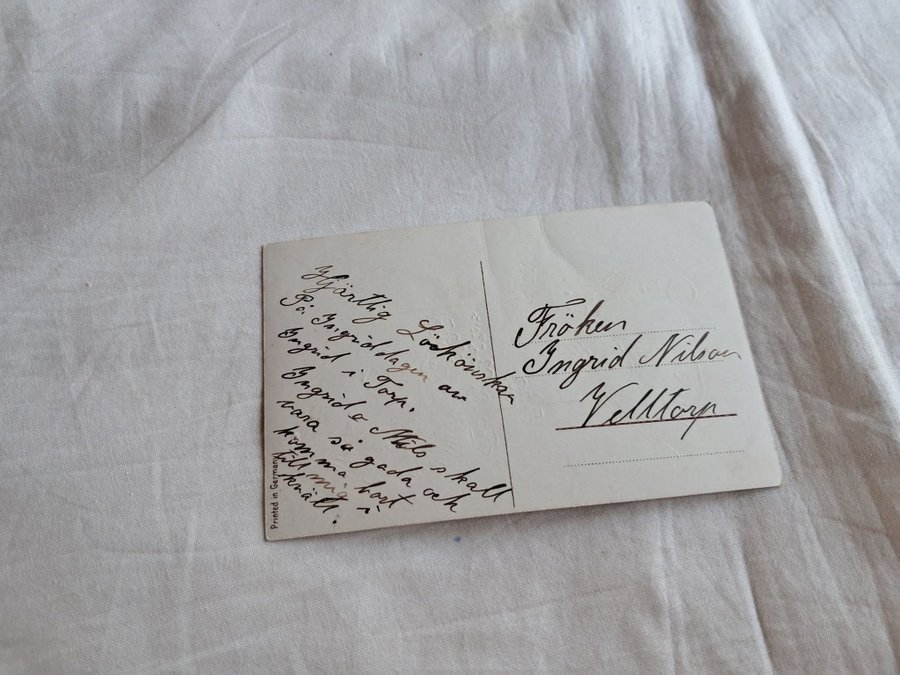 Hjärtlig Löckönskan
På Ingriddagen av
Ingrid i Torp.
Ingrid o Nils skall
vara så goda och
komma bort
till mig i
kväll.
Printed in Germany
Fröken
Ingrid Nilson
Velltorp